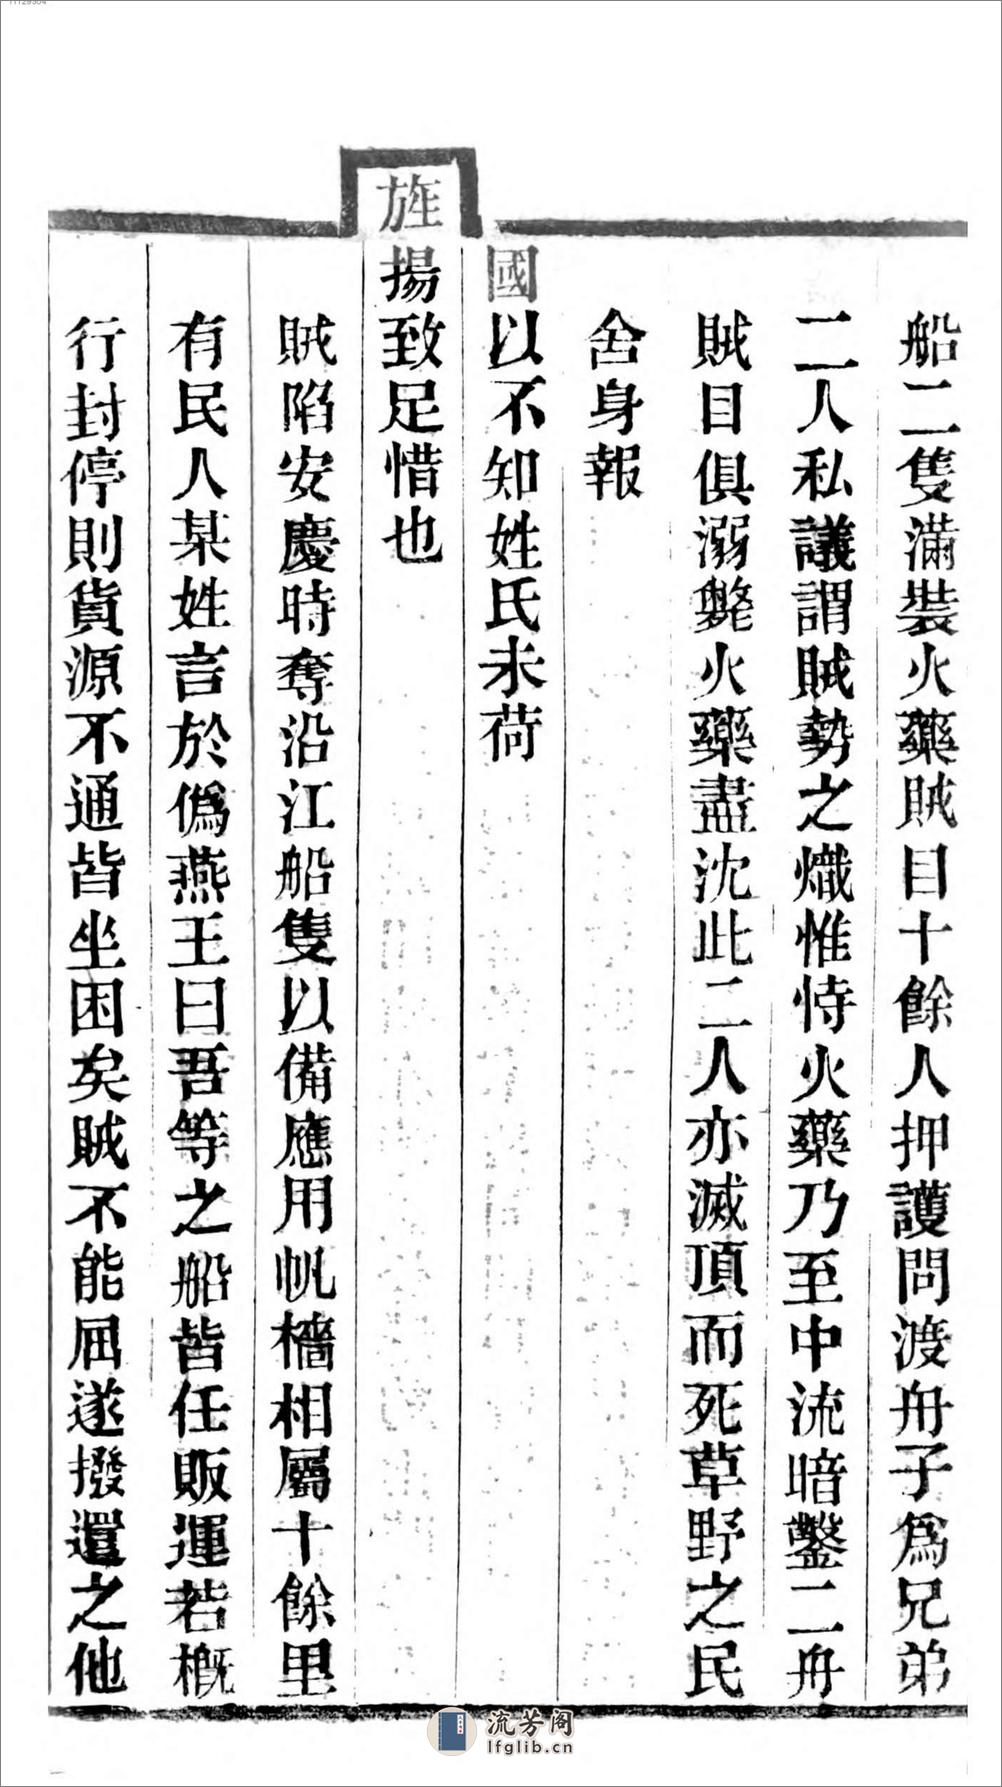 船二隻滿裝火藥賊目十餘人押護問渡舟子爲兄弟
二人私議謂賊勢之熾惟恃火藥乃至中流暗鑿二舟
賊目俱溺斃火藥盡沈此二人亦滅頂而死草野之民
舍身報
國以不知姓氏未荷
旌揚致足惜也
賊陷安慶時奪沿江船隻以備應用帆檣相屬十餘里
有民人某姓言於僞燕王曰吾等之船皆任販運若概
行封停則貨源不通皆坐困矣賊不能屈遂撥還之他
流芳阁
lfglib.cn